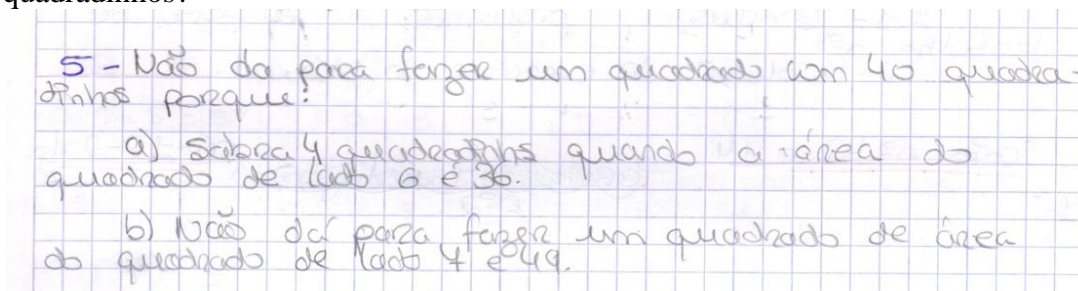 quadradinhos?
5 - Não da para fazer um quadrado com 40 quadra-
dinhos porque:
a) Sobra 4 quadradinhs quando a área do
quadrado de lado 6 é 36.
b) Não dá para fazer um quadrado de área
do quadrado de lado 7 é 49.